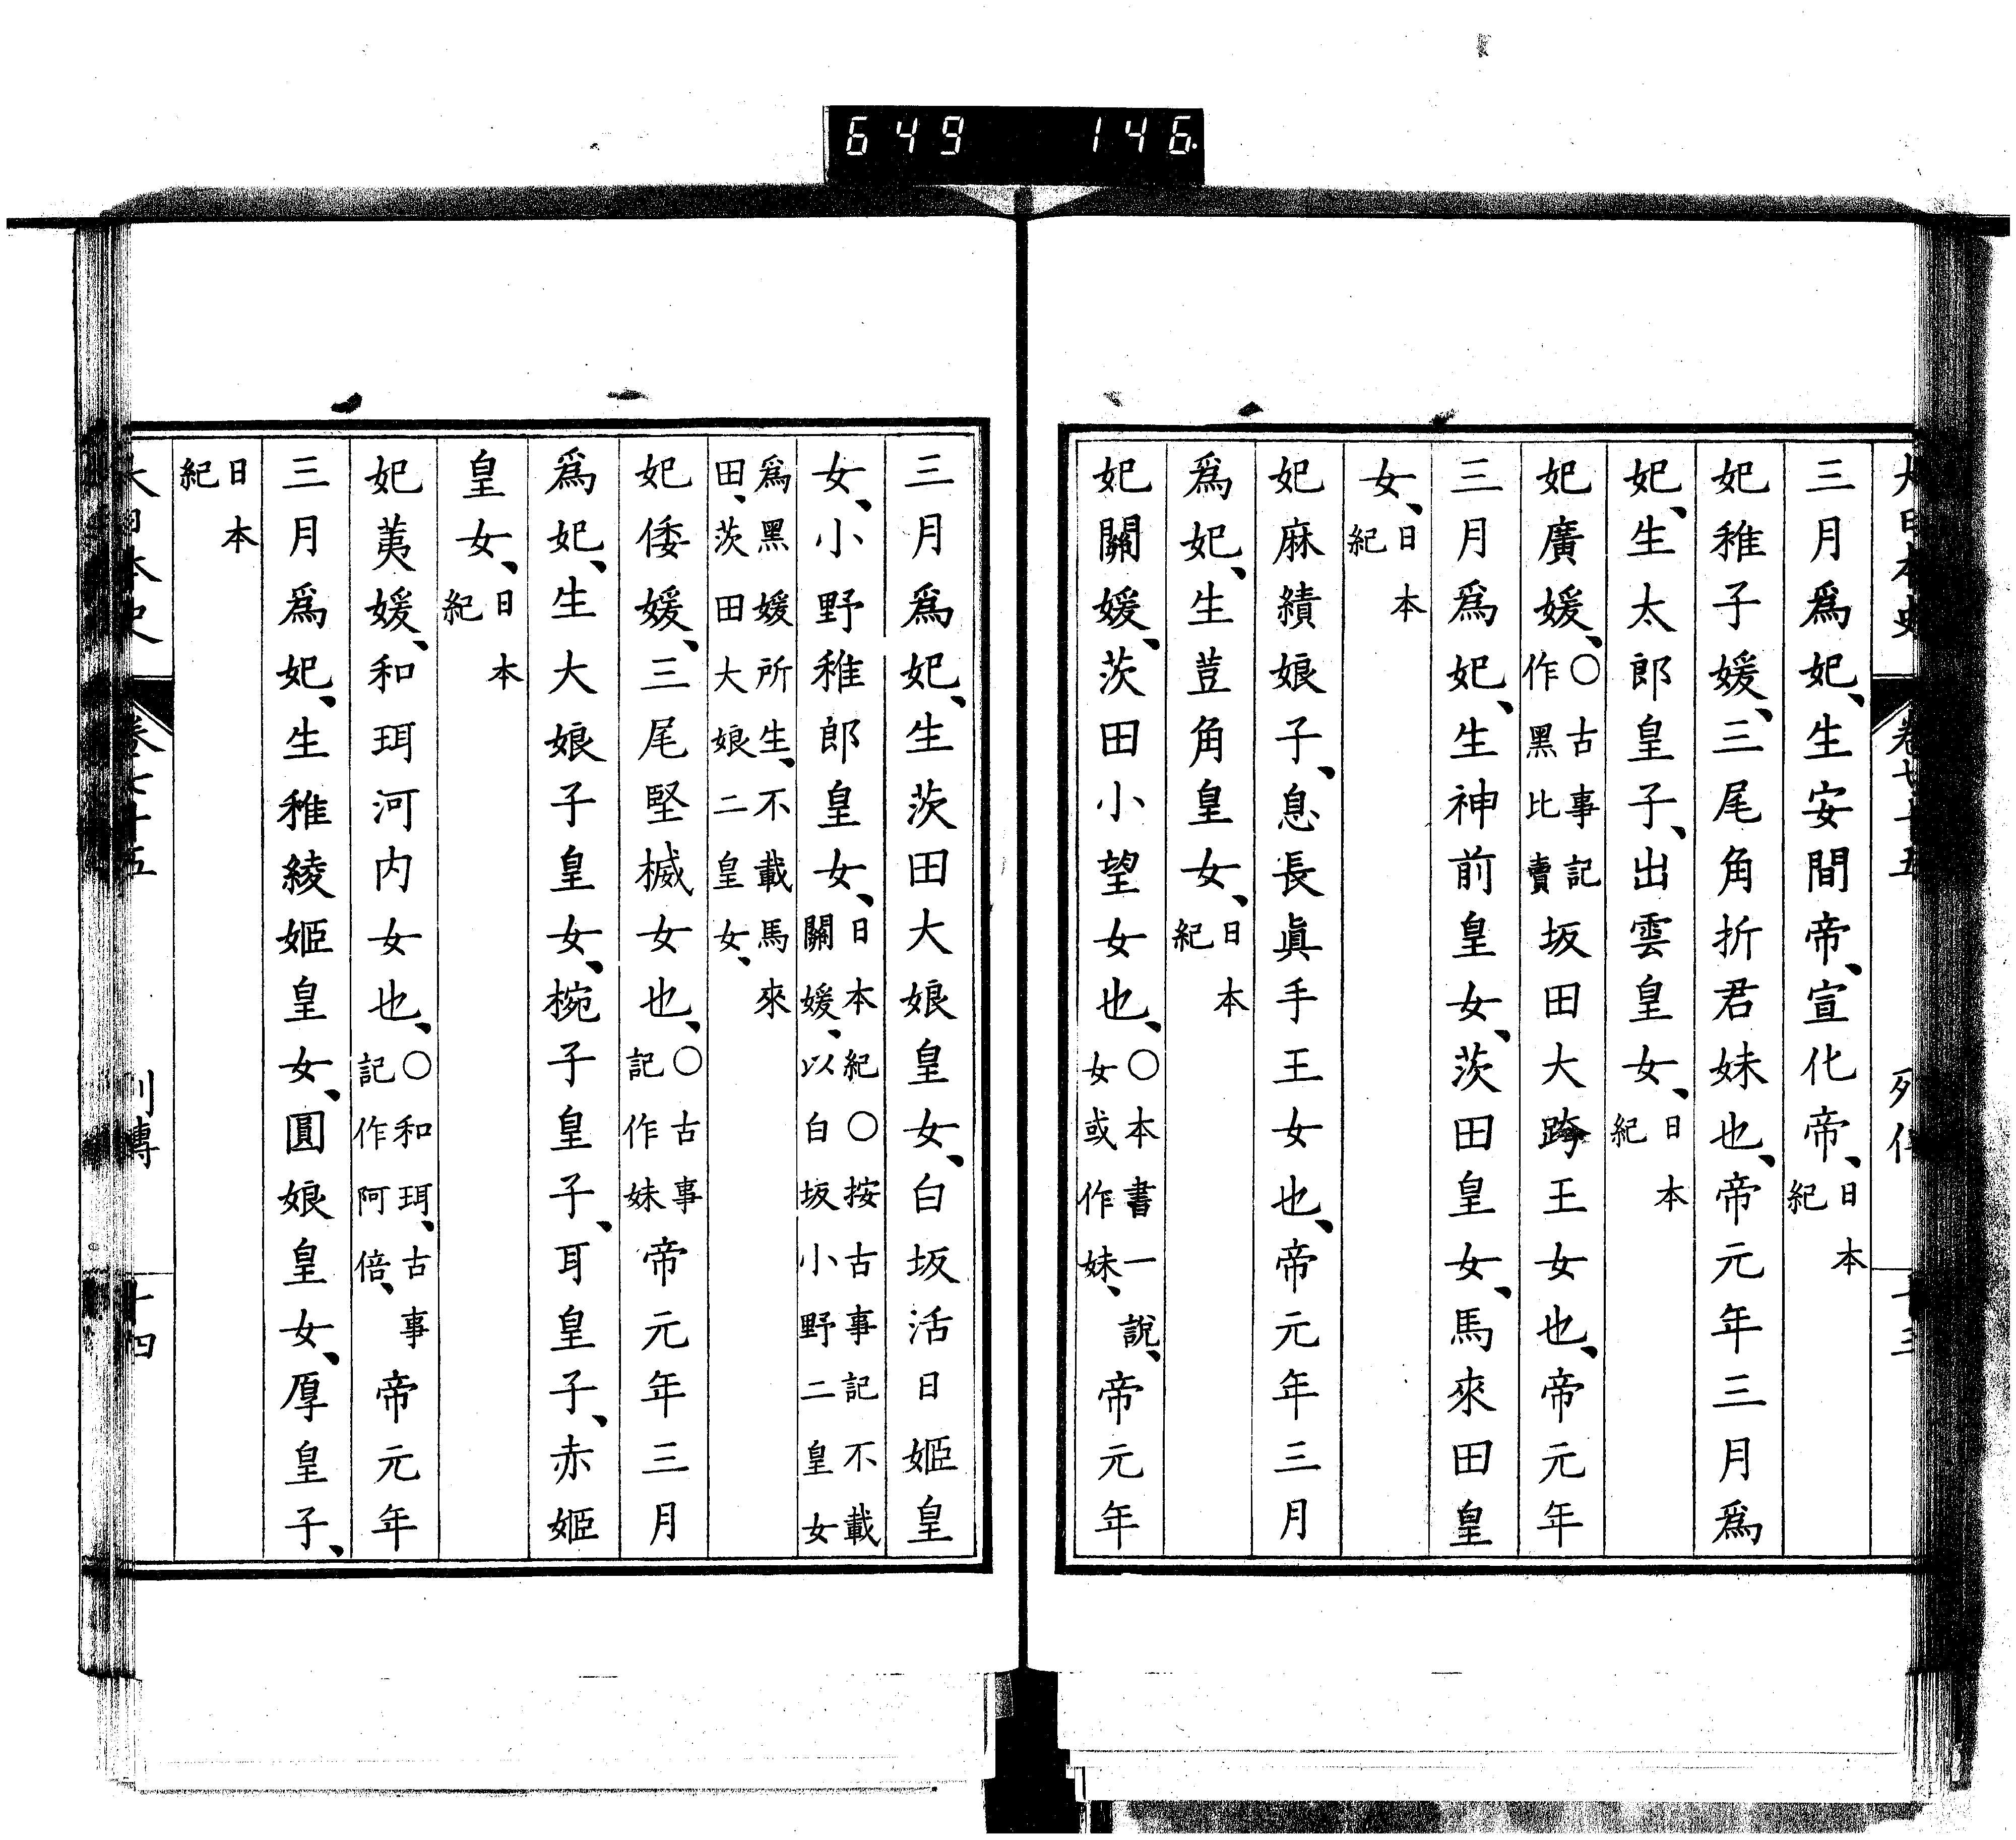 649 146
大日本史 卷七十五 列傳 十三
三月爲妃、生安閒帝、宣化帝、日本紀
妃稚子媛、三尾角折君妹也、帝元年三月爲
妃、生太郎皇子、出雲皇女、日本紀
妃廣媛、〇古事記作黑比賣坂田大跨王女也、帝元年
三月爲妃、生神前皇女、茨田皇女、馬來田皇
女、日本紀
妃麻績娘子、息長眞手王女也、帝元年三月
爲妃、生荳角皇女、日本紀
妃關媛、茨田小望女也、〇本書一說、女或作妹、帝元年
三月爲妃、生茨田大娘皇女、白坂活日姬皇
女、小野稚郎皇女、日本紀〇按古事記不載關媛、以白坂小野二皇女
爲黑媛所生、不載馬來田、茨田大娘二皇女、
妃倭媛、三尾堅楲女也、〇古事記作妹帝元年三月
爲妃、生大娘子皇女、椀子皇子、耳皇子、赤姬
皇女、日本紀
妃荑媛、和珥河内女也、〇和珥、古事記作阿倍、帝元年
三月爲妃、生稚綾姬皇女、圓娘皇女、厚皇子、
日本紀
大日本史 卷七十五 列傳 十四